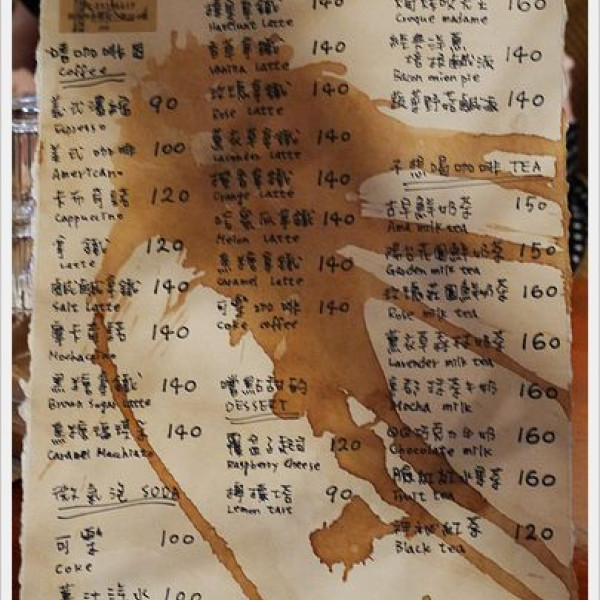 嗜咖啡因
Coffee
義式濃縮 90
Espresso
美式咖啡 100
Americano
卡布奇諾 120
Cappuccino
拿鐵 120
Latte
鹹鹹拿鐵 140
Salt Latte
摩卡奇諾 140
Mochaccino
黑糖拿鐵 140
Brown Sugar Latte
焦糖瑪琪朵 140
Caramel Macchiato
微氣泡 SODA
可樂 100
Coke
薑汁汽水 100
榛果拿鐵 140
Hazelnut Latte
香草拿鐵 140
Vanilla Latte
玫瑰拿鐵 140
Rose Latte
薰衣草拿鐵 140
Lavender Latte
橙香拿鐵 140
Orange Latte
哈蜜瓜拿鐵 140
Melon Latte
焦糖拿鐵 140
Caramel Latte
可樂咖啡 140
Coke coffee
嚐點甜的
DESSERT
覆盆子起司 120
Raspberry Cheese
檸檬塔 90
Lemon Tart
160
Croque madame
經典洋蔥
培根鹹派 140
Bacon pie
蔬草野菇鹹派 140
不想喝咖啡 TEA
古早鮮奶茶 150
Ama milk tea
陽台花園鮮奶茶 150
Garden milk tea
玫瑰花園鮮奶茶 160
Rose milk tea
薰衣草森林奶茶 160
Lavender milk tea
牛奶 160
Mocha milk
QQ巧克力牛奶 160
Chocolate milk
臉紅紅水果茶 160
Fruit tea
神秘紅茶 120
Black tea